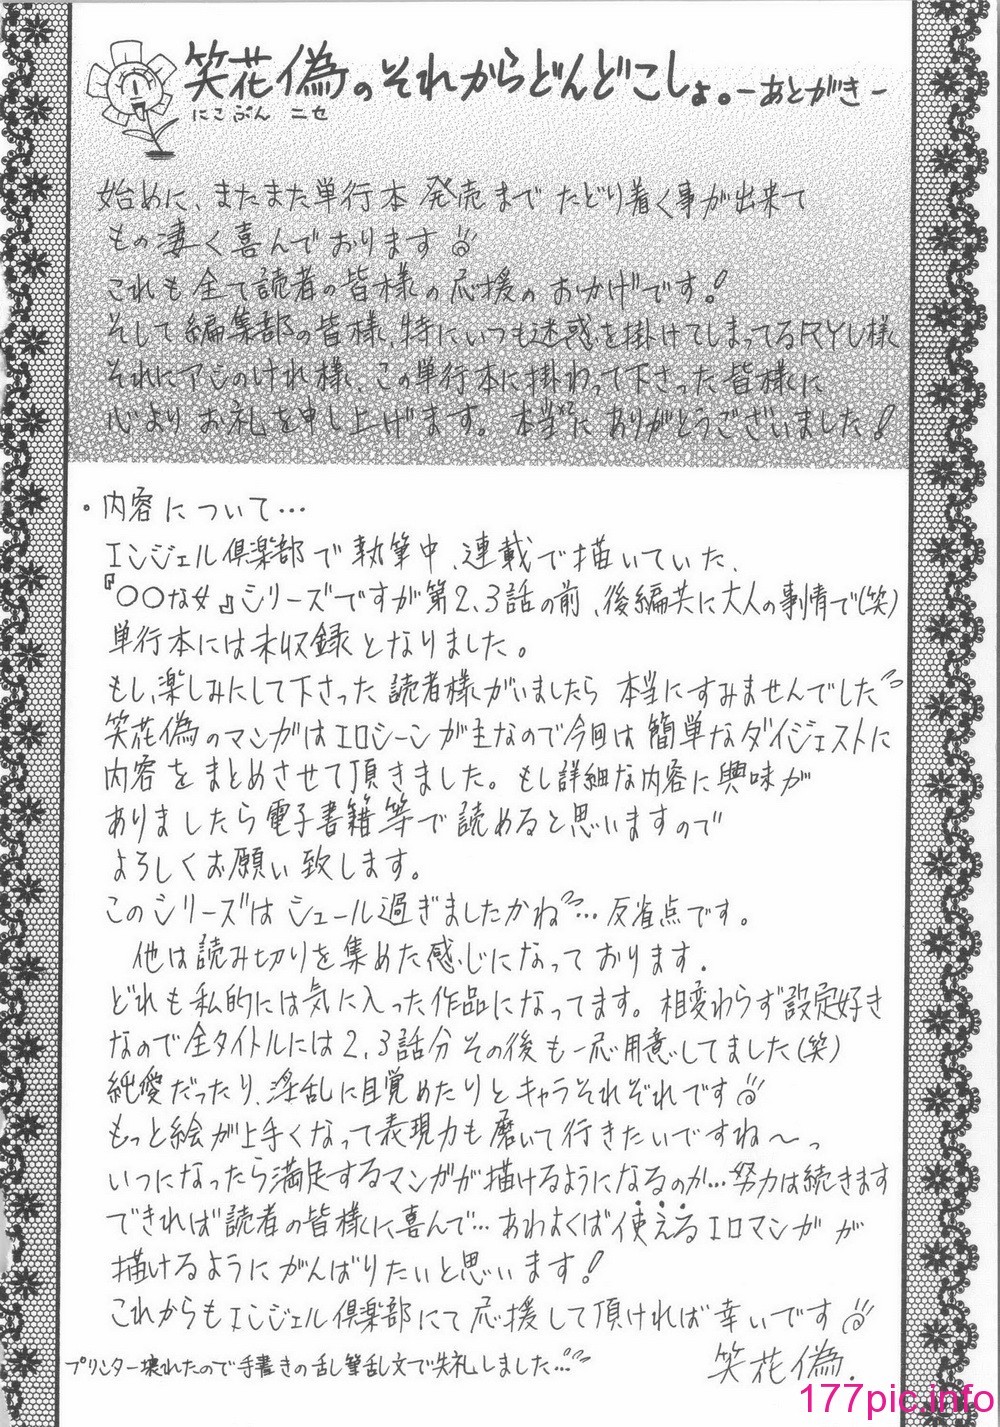 笑花偽のそれからどんどこしょ。-あとがき-
にこぶん ニセ
始めに、またまた単行本発売までたどり着く事が出来て
もの凄く喜んでおります
これも全て読者の皆様の応援のおかげです!
そして編集部の皆様、特にいつも迷惑を掛けてしまってるRYU様
それにアシのけれ様、この単行本に掛わって下さった皆様に
心よりお礼を申し上げます。本当にありがとうございました!
・内容について…
エンジェル倶楽部で執筆中、連載で描いていた、
『○○な女』シリーズですが第2,3話の前、後編共に大人の事情で(笑)
単行本には未収録となりました。
もし、楽しみにして下さった読者様がいましたら本当にすみませんでした
笑花偽のマンガはエロシーンが主なので今回は簡単なダイジェストに
内容をまとめさせて頂きました。もし詳細な内容に興味が
ありましたら電子書籍等で読めると思いますので
よろしくお願い致します。
このシリーズはシュール過ぎましたかね…反省点です。
他は読み切りを集めた感じになっております.
どれも私的には気に入った作品になってます。相変わらず設定好き
なので全タイトルには2,3話分その後も一応用意してました(笑)
純愛だったり、淫乱に目覚めたりとキャラそれぞれです
もっと絵が上手くなって表現力も磨いて行きたいですね〜っ
いつになったら満足するマンガが描けるようになるのか…努力は続きます
できれば読者の皆様に喜んで…あわよくば使えるエロマンガが
描けるようにがんばりたいと思います!
これからもエンジェル倶楽部にて応援して頂ければ幸いです
プリンター壊れたので手書きの乱筆乱文で失礼しました…
笑花偽.
177pic.info